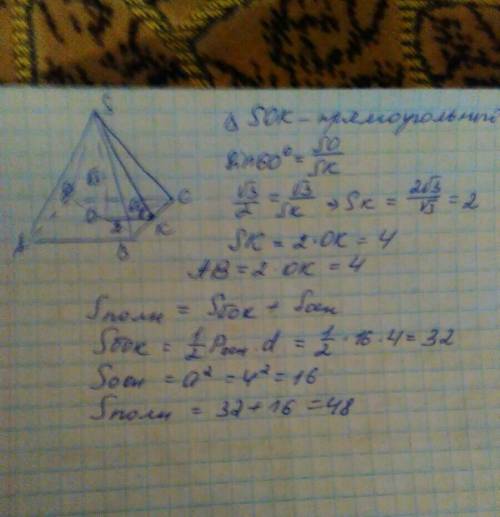 S
A
B
C
K
O
Δ SOK - прямоугольный
sin 60° = SO/SK
√3/2 = √3/SK ⇒ SK = 2√3/√3 = 2
SK = 2·OK = 4
AB = 2·OK = 4
Sполн = Sбок + Sосн
Sбок = 1/2 Pосн · d = 1/2 · 16 · 4 = 32
Sосн = a² = 4² = 16
Sполн = 32 + 16 = 48